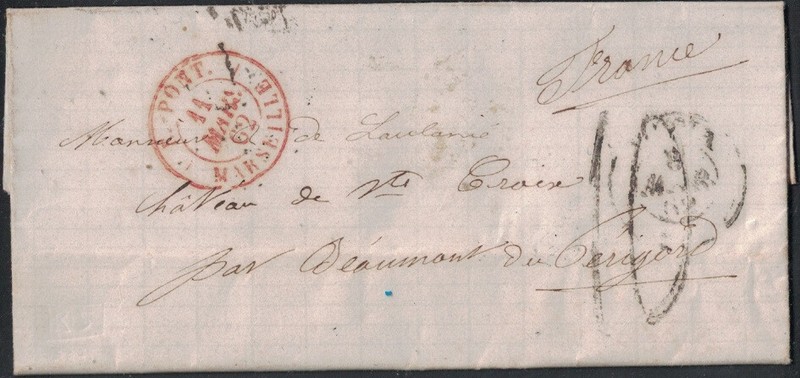 France
PORT. MARSEILLE
11
MAR
62
Monsieur de Laulanié
château de Ste Croix
par Béaumont du Perigord
10